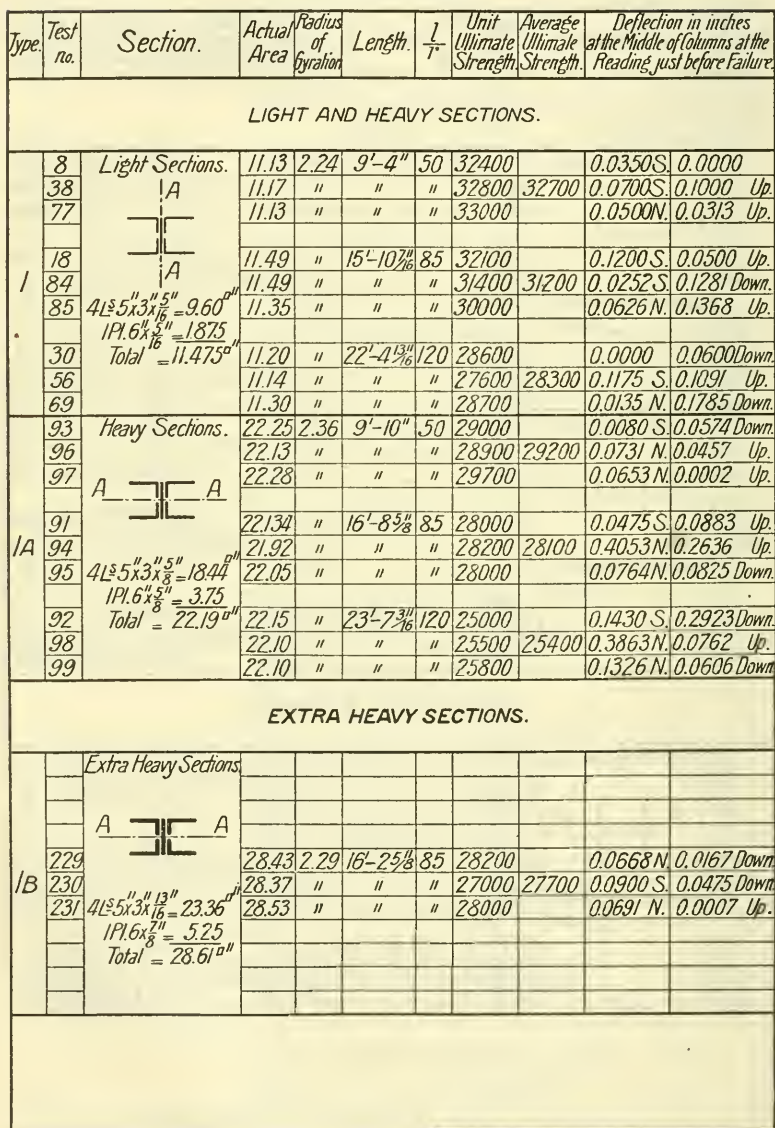 Type. Test no. Section. Actual Area Radius of Gyration Length. l/r Unit Ultimate Strength. Average Ultimate Strength. Deflection in inches at the Middle of Columns at the Reading just before Failure.
LIGHT AND HEAVY SECTIONS.
8 Light Sections. 11.13 2.24 9'-4" 50 32400 0.0350S. 0.0000
38 A 11.17 " " " 32800 32700 0.0700S. 0.1000 Up.
77 11.13 " " " 33000 0.0500N. 0.0313 Up.
18 11.49 " 15'-10 7/16" 85 32100 0.1200 S. 0.0500 Up.
1 84 A 11.49 " " " 31400 31200 0.0252 S. 0.1281 Down.
85 4Ls 5"x3"x5/16" = 9.60□" 11.35 " " " 30000 0.0626 N. 0.1368 Up.
1Pl. 6"x5/16" = 1.875
30 Total = 11.475□" 11.20 " 22'-4 13/16" 120 28600 0.0000 0.0600 Down.
56 11.14 " " " 27600 28300 0.1175 S. 0.1091 Up.
69 11.30 " " " 28700 0.0135 N. 0.1785 Down.
93 Heavy Sections. 22.25 2.36 9'-10" 50 29000 0.0080 S. 0.0574 Down.
96 22.13 " " " 28900 29200 0.0731 N. 0.0457 Up.
97 A A 22.28 " " " 29700 0.0653 N. 0.0002 Up.
91 22.134 " 16'-8 5/8" 85 28000 0.0475 S. 0.0883 Up.
1A 94 21.92 " " " 28200 28100 0.4053 N. 0.2636 Up.
95 4Ls 5"x3"x5/8" = 18.44□" 22.05 " " " 28000 0.0764 N. 0.0825 Down.
1Pl. 6"x5/8" = 3.75
92 Total = 22.19□" 22.15 " 23'-7 3/16" 120 25000 0.1430 S. 0.2923 Down.
98 22.10 " " " 25500 25400 0.3863 N. 0.0762 Up.
99 22.10 " " " 25800 0.1326 N. 0.0606 Down
EXTRA HEAVY SECTIONS.
Extra Heavy Sections
A A
229 28.43 2.29 16'-2 5/8" 85 28200 0.0668 N. 0.0167 Down.
1B 230 28.37 " " " 27000 27700 0.0900 S. 0.0475 Down.
231 4Ls 5"x3"x13/16" = 23.36□" 28.53 " " " 28000 0.0691 N. 0.0007 Up.
1Pl. 6x7/8" = 5.25
Total = 28.61□"